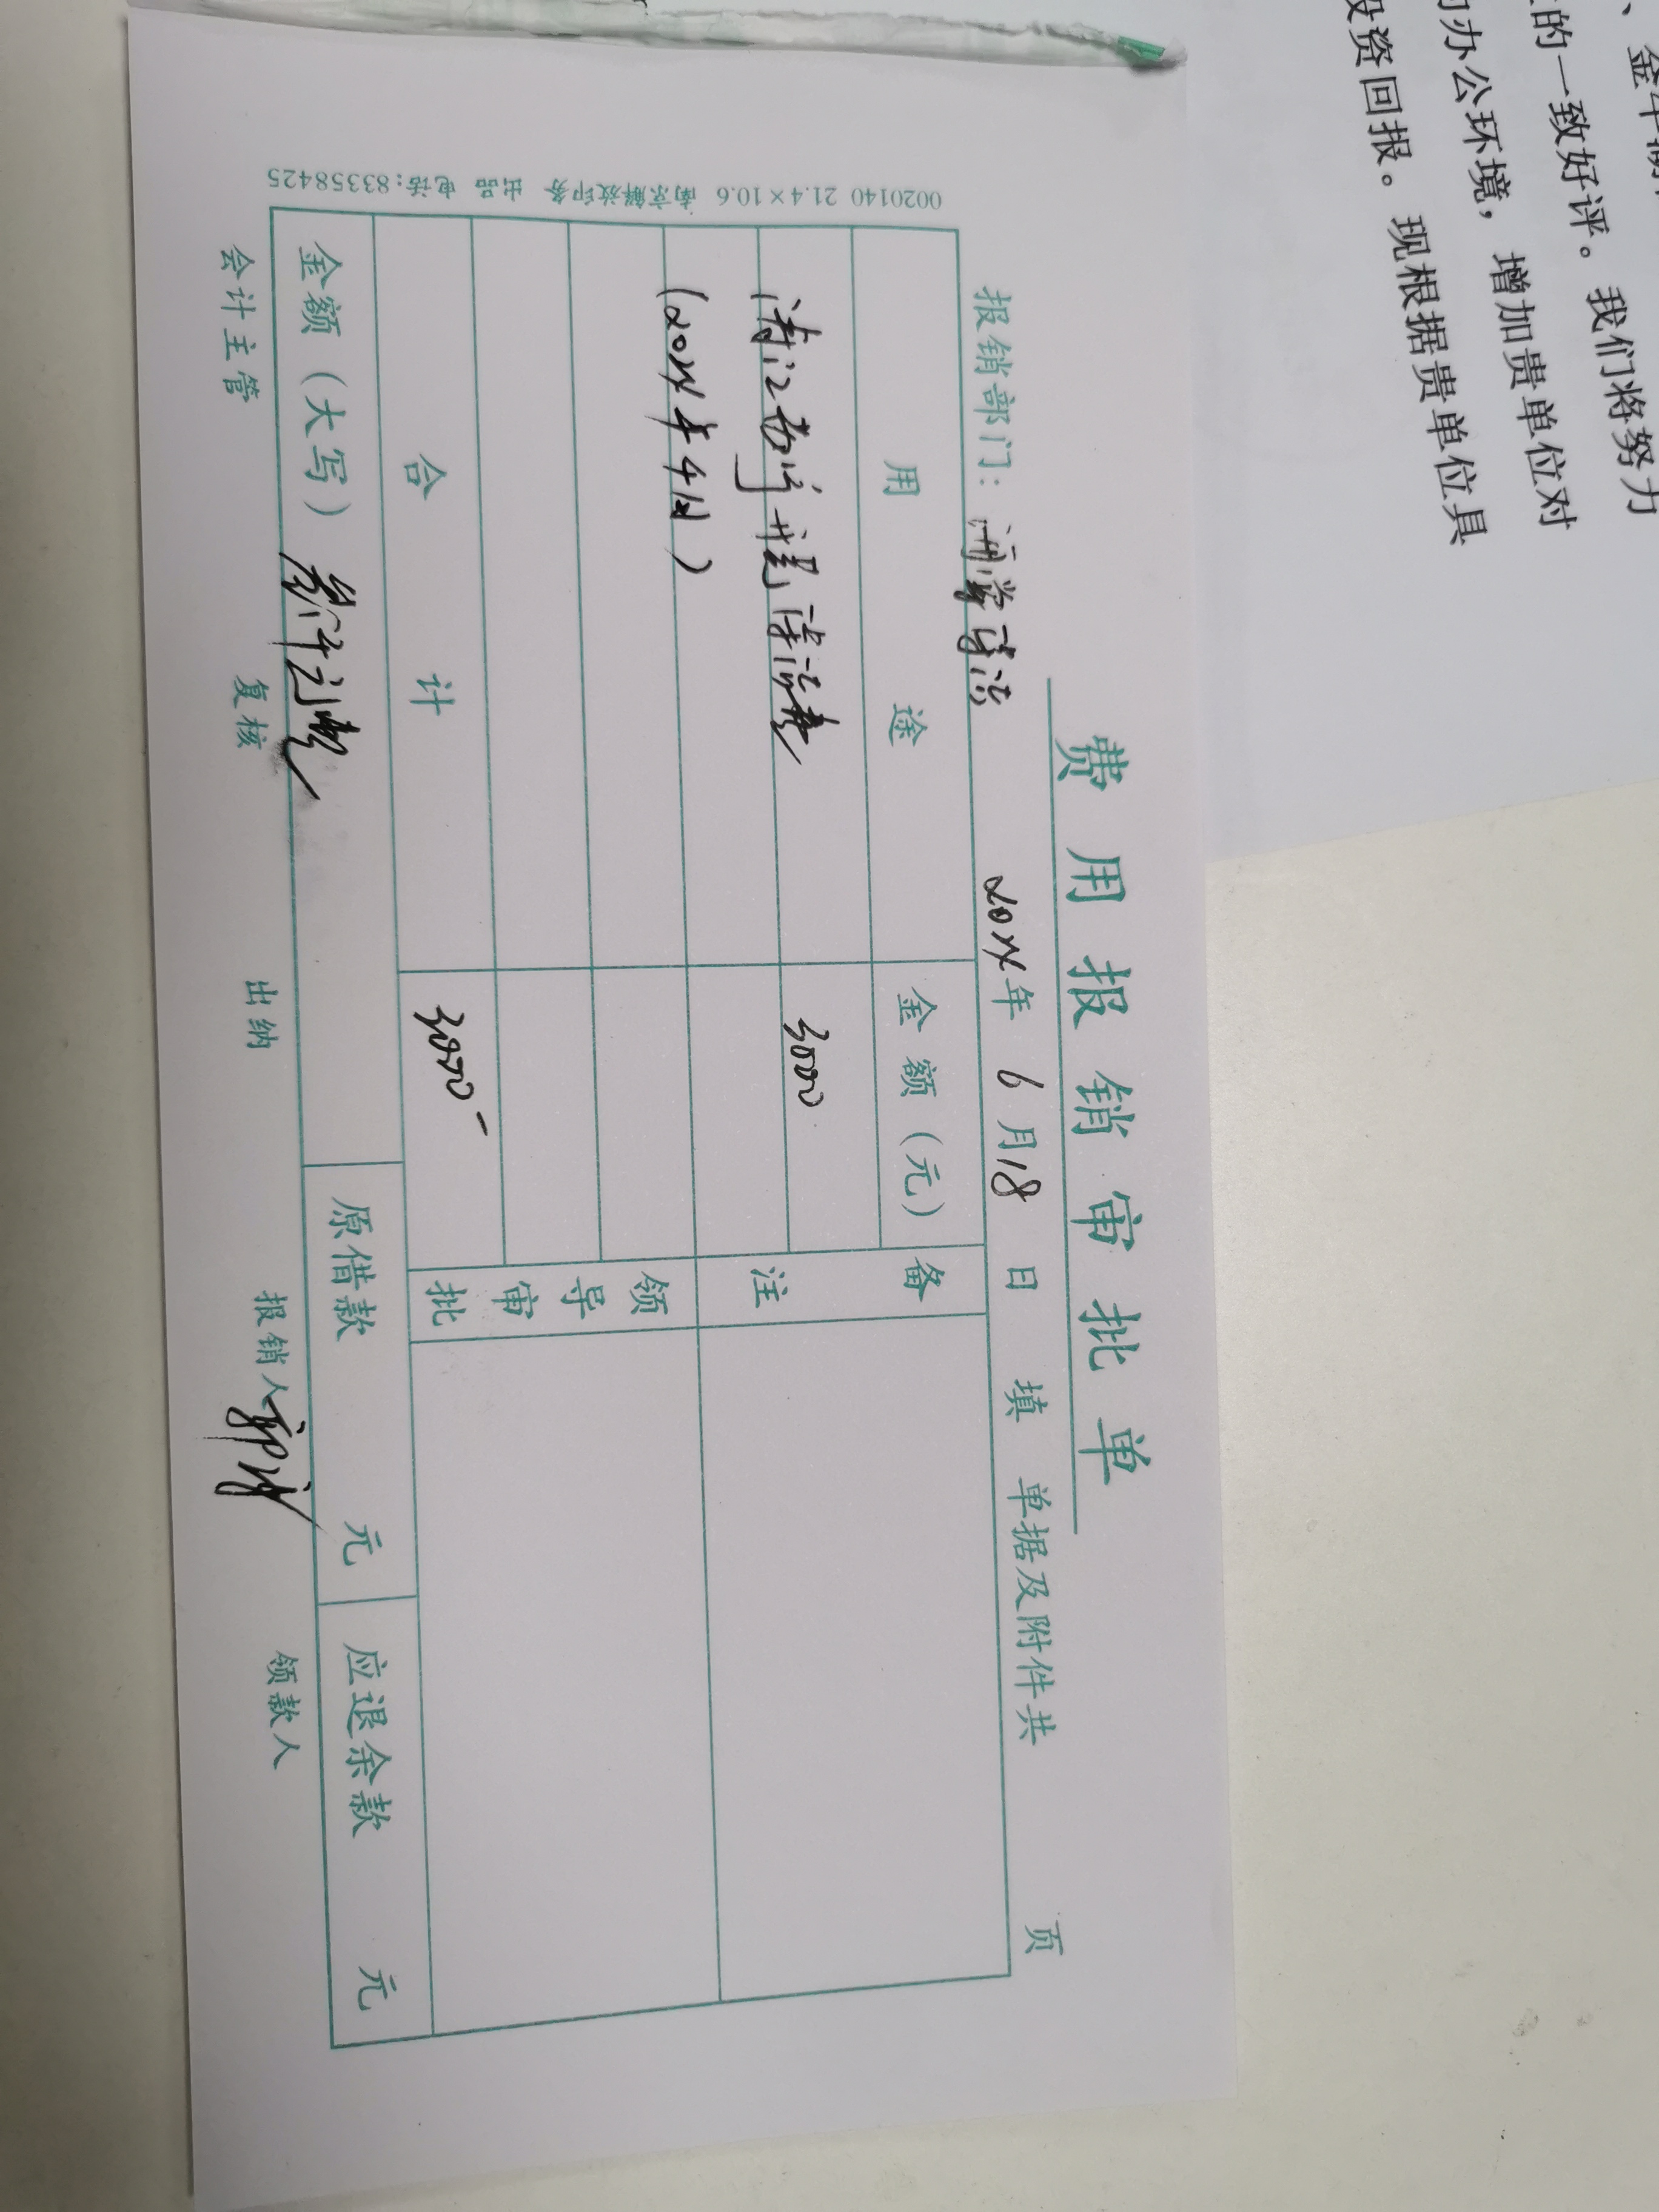 费用报销审批单
报销部门： 2024年 6月18日 填 单据及附件共 页
用途 金额（元） 备注
清洁费 3000
（2024年4月）
领导审批
合计 3000-
金额（大写） 叁仟 原借款 元 应退余款 元
会计主管 复核 出纳 报销人 领款人
0020140 21.4×10.6 南京解放印务 出品 电话：83358425
的一致好评。我们将努力
办公环境，增加贵单位对
投资回报。现根据贵单位具